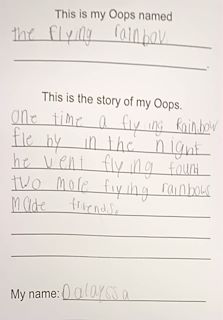 This is my Oops named
the flying rainbov
This is the story of my Oops.
one time a flying Rainbow
fle by in the night
he went flying found
two more flying rainbows
made friends.
My name: Dalayssa